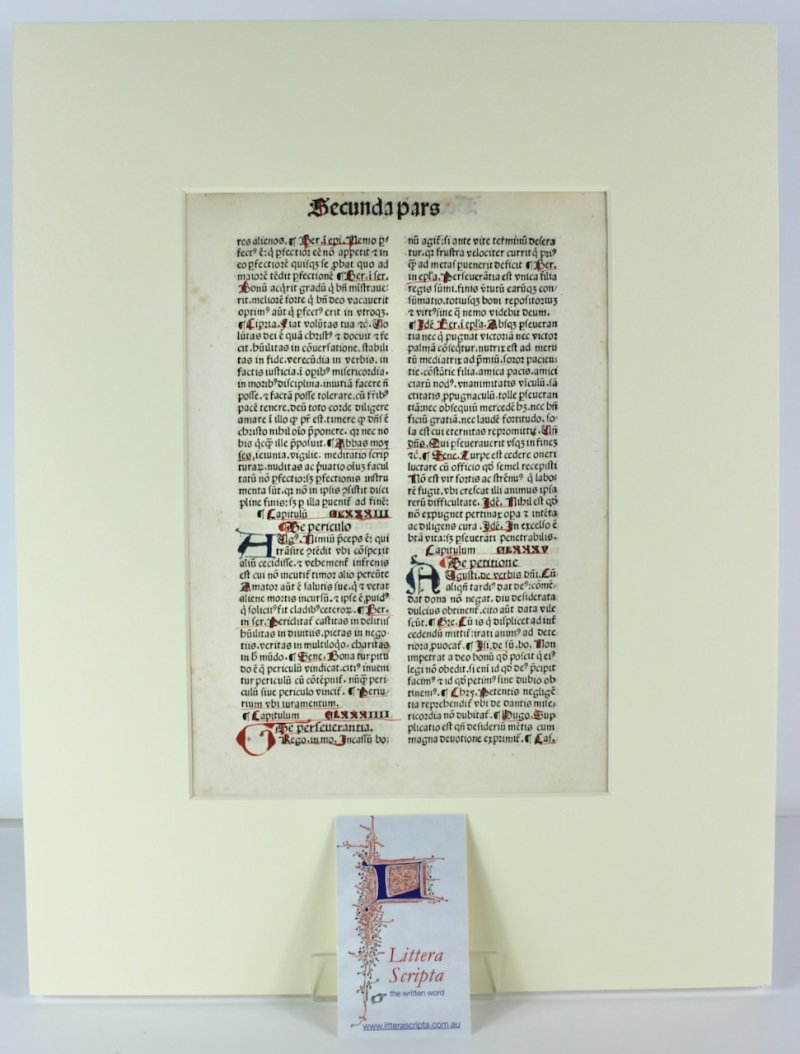 Secunda pars
res alienos. ¶ Ber. ī epi. Nemo ꝑ/
fect⁹ ē: q̇ ꝑfectior eē nō appetit ⁊ in
eo ꝑfectiorē quisqȝ se ꝓbat quo ad
maiorē tēdit ꝑfectionē ¶ Ber. ī ser.
Bonū acq̇rit gradū q̇ bn̄ mīstraue:
rit. meliorē forte q̇ bn̄ deo vacauerit
optim⁹ aūt q̇ ꝑfect⁹ erit in vtroqȝ.
¶ Cipria. Fiat volūtas tua ⁊c̄. Uo
lūtas dei ē quā christ⁹ ⁊ docuit ⁊ fe
cit. hūilitas in cōuersatione. stabili
tas in fide. verecūdia in verbis. in
factis iusticia. ī opib⁹ misericordia.
in morib⁹ disciplina. iniuriā facere ñ
posse. ⁊ factā posse tolerare. cū fr̄ib⁹
pacē tenere. deū toto corde diligere
amare ī illo ꝙ pr̄ est. timere ꝙ dn̄s ē
christo nihil oīo p̄ponere. qꝛ nec no
bis q̇cꝙ̄ ille p̄posuit. ¶ Abbas moy
ses. ieiunia. vigilie. meditatio scrip
turaꝝ. nuditas ac p̄uatio oīuȝ facul
tatū nō ꝑfectio: sȝ ꝑfectionis instru
menta sūt. qꝛ nō in ipsis ꝯsistit disci
pline finis: sȝ ꝑ illa ꝑuenit̄ ad finē:
¶ Capitulū CLXXXIII
¶ De periculo
AUg⁹. Nimiū p̄ceps ē: qui
trāsire ꝯtēdit vbi cōspexit
aliū cecidisse. ⁊ vehemēt̄ infrenis
est cui nō incutit̄ timor alio pereūte
Amator aūt ē salutis sue. q̇ ⁊ vetat
aliene mortis incursū. ⁊ ipse ē ꝓuid⁹
q̇ solicit⁹ fit cladib⁹ ceteroꝝ. ¶ Ber.
in ser. Periclitat̄ castitas in delitiis
hūilitas in diuitiis. pietas in nego
tiis. veritas in multiloq̇o. charitas
in h̄ mūdo. ¶ Sene. Bona turpitu
do ē q̄ periculū vindicat. citi⁹ inueni
tur periculū cū cōtēpnit̄. nūꝙ̄ peri/
culū siue periculo vincit̄. ¶ Periu/
rium vbi iuramentum.
¶ Capitulum CLXXXIIII
¶ De perseuerantia.
GRego. iu. mo. Incassū bo:
nū agit̄: si ante vite terminū desera
tur. qꝛ frustra velociter currit q̇ pri⁹
ꝙ̄ ad metas ꝑuenerit deficit ¶ Ber.
in ep̄la. Perseuerātia est vnica filia
regis sūmi. finis v̄tutū earūqȝ con/
sūmatio. totiusqȝ boni repositoriuȝ
⁊ virt⁹ sine q̄ nemo videbit deum.
¶ Idē Ber. ī ep̄la. Absqȝ ꝑseueran
tia nec q̇ pugnat victoriā nec victor
palmā cōseq̇tur. nutrix est ad meri/
tū mediatrix ad p̄miū. soror pacien/
tie. cōstātie filia. amica pacis. amici
ciarū nod⁹. vnanimitatis vīculū. sā
ctitatis ꝓpugnaculū. tolle ꝑseueran
tiā: nec obsequiū mercedē hȝ. nec bn̄
ficiū gratiā. nec laudē fortitudo. so/
la est cui eternitas repromittit̄. Un̄
dn̄s. Qui ꝑseuerauerit vsqȝ in fineȝ
⁊c̄. ¶ Sene. Turpe est cedere oneri
luctare cū officio qḋ semel recepisti
Nō est vir fortis ac strēnu⁹ q̇ labo/
rē fugit. vbi crescat illi animus ipsa
rerū difficultate. Idē. Nihil est qḋ
nō expugnet pertinax opa ⁊ intēta
ac diligens cura. Idē. In excelso ē
btā vita: sȝ ꝑseuerāti penetrabilis.
¶ Capitulum CLXXXV
¶ De petitione
AUgusti. de verbis dn̄i. Cū
aliqn̄ tardi⁹ dat de⁹: cōmē/
dat dona nō negat. diu desiderata
dulcius obtinent̄. cito aūt data vile
scūt. ¶ Gre. Cū is q̇ displicet ad int̄
cedendū mittit̄: irati anim⁹ ad dete
riora ꝓuocat̄. ¶ Isi. de sū. bo. Non
impetrat a deo bonū qḋ poscit q̇ ei⁹
legi nō obedit. si eni id qḋ de⁹ p̄cipit
facim⁹ ⁊ id qḋ petim⁹ sine dubio ob
tinem⁹. ¶ Chry. Petentis negligē
tia reprehendit̄ vbi de dantis mise/
ricordia nō dubitat̄. ¶ Hugo. Sup
plicatio est qn̄ desideriū mētis cum
magna deuotione exprimit̄. ¶ Cas.
Littera
Scripta
the written word
www.litterascripta.com.au